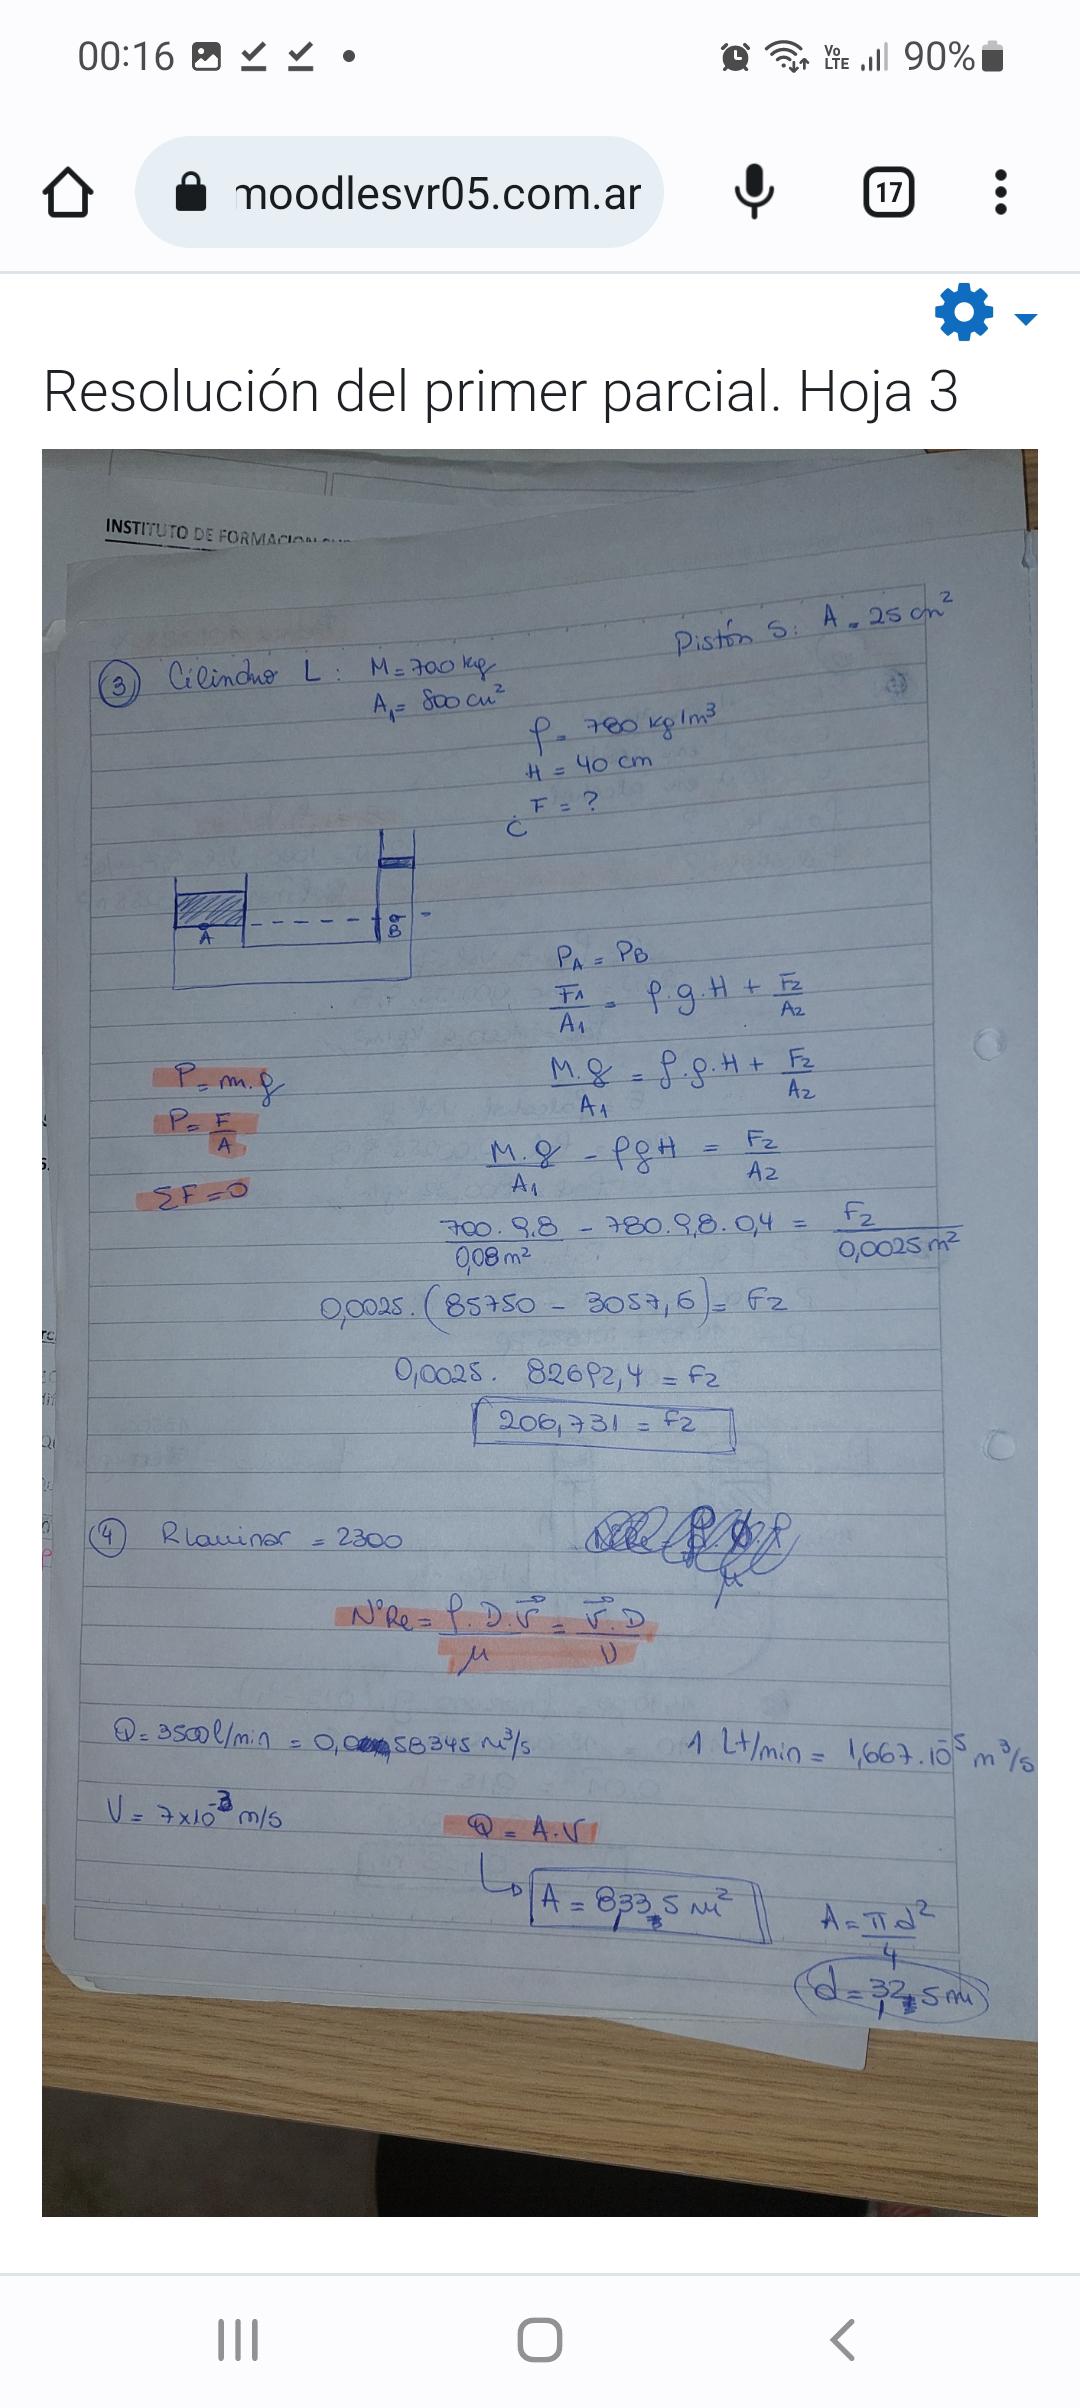 00:16
Vo LTE 90%
moodlesvr05.com.ar
17
Resolución del primer parcial. Hoja 3
INSTITUTO DE FORMACION
3 Cilindro L: M = 700 kg Pistón S: A = 25 cm²
A₁ = 800 cm²
ρ = 780 kg/m³
H = 40 cm
¿ F = ?
A B
PA = PB
F1/A1 = ρ.g.H + F2/A2
P = m.g
M.g/A1 = ρ.g.H + F2/A2
P = F/A
M.g/A1 - ρgH = F2/A2
ΣF = 0
700.9,8/0,08m² - 780.9,8.0,4 = F2/0,0025m²
0,0025.(85750 - 3057,6) = F2
0,0025. 82692,4 = F2
206,731 = F2
4 Rlaminar = 2300
N°Re = ρ.D.V/μ = V.D/υ
Q = 3500 l/min = 0,058345 m³/s 1 Lt/min = 1,667.10⁻⁵ m³/s
V = 7x10⁻³ m/s
Q = A.V
A = 8,335 m²
A = πd²/4
d = 3,25 m